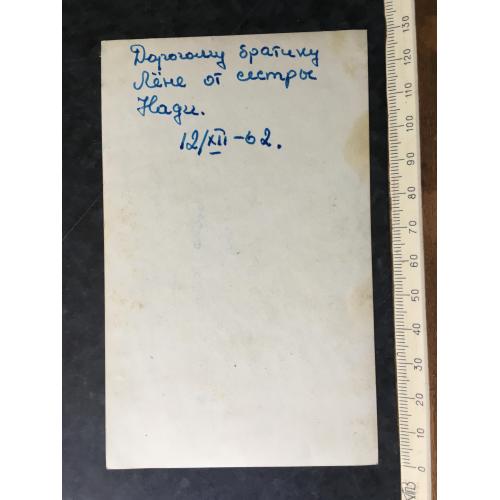 Дорогому братику
Лёне от сестры
Нади.
12/XII-62.
130
120
110
100
90
80
70
60
50
40
30
20
10
0